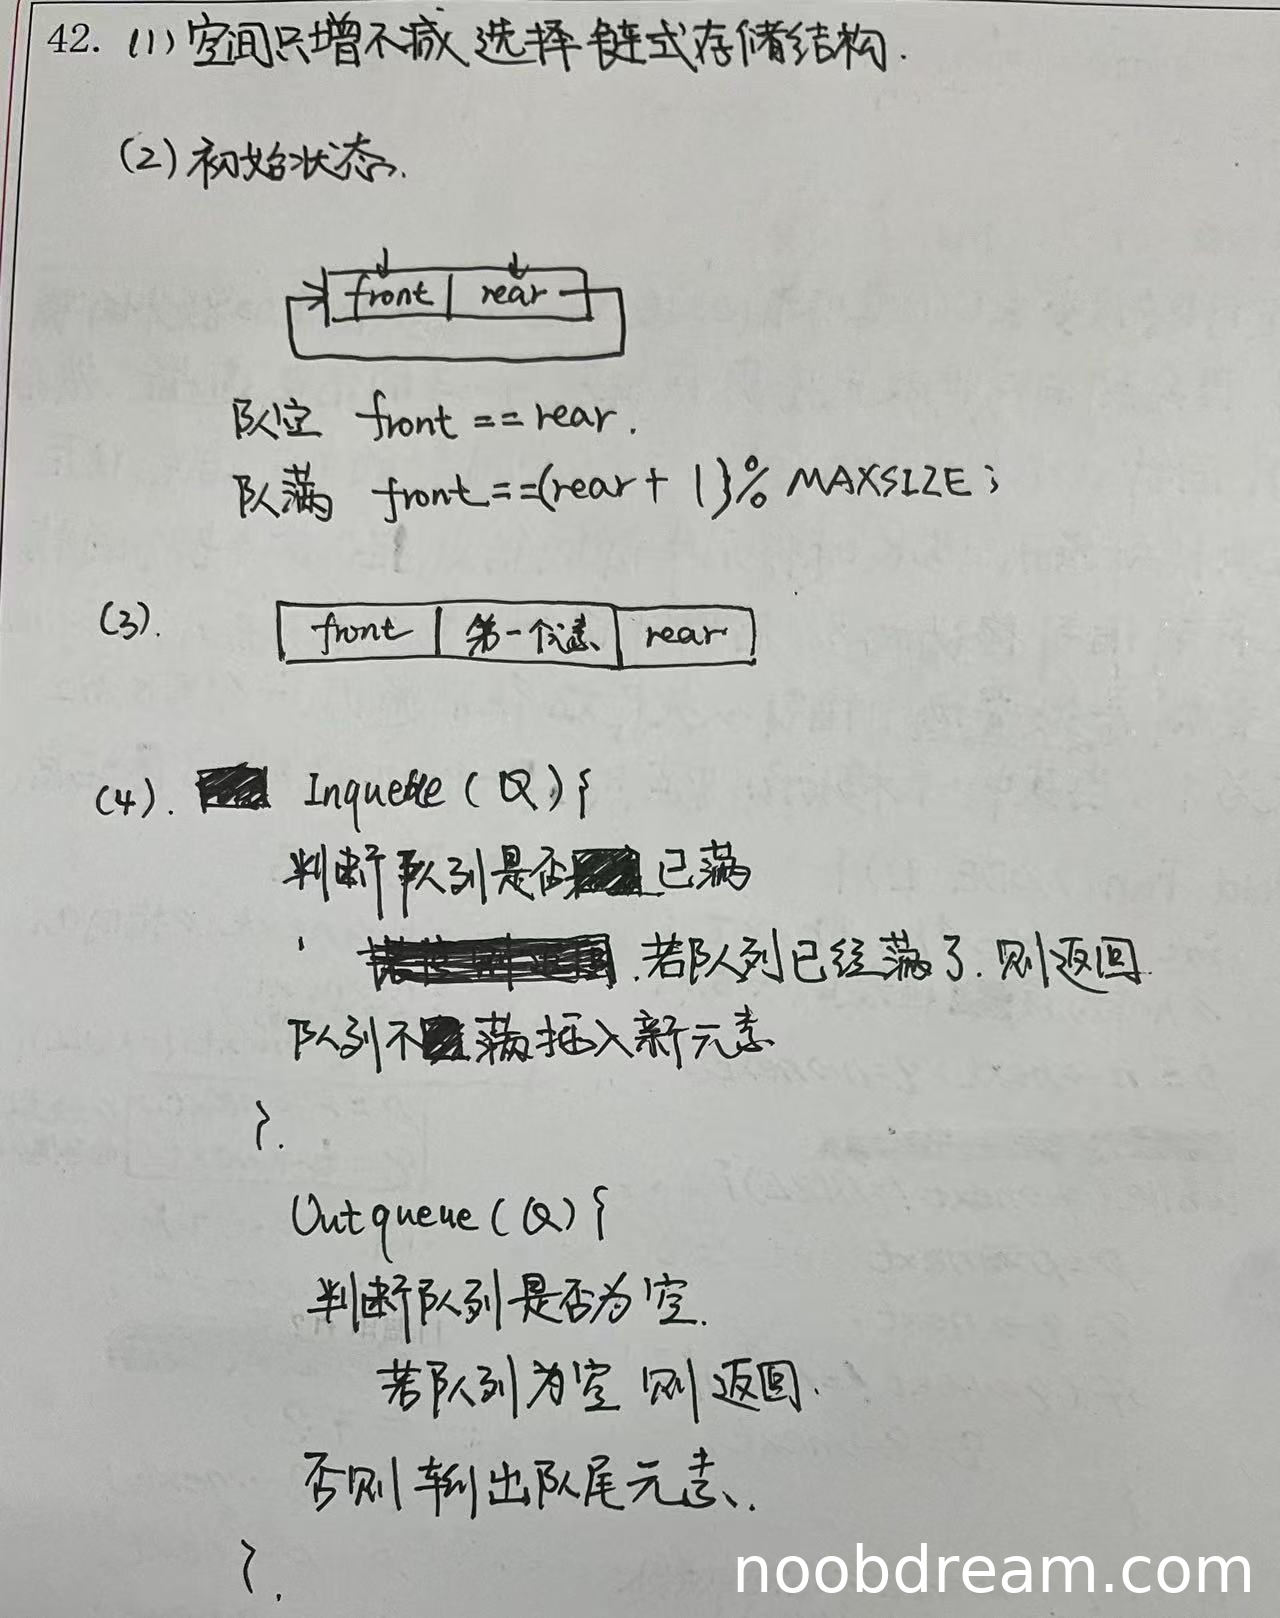 42. (1) 空间只增不减 选择链式存储结构.
(2) 初始状态.
front rear
队空 front == rear.
队满 front == (rear + 1) % MAXSIZE;
(3). front 第一个元素 rear
(4). Inqueue (Q) {
判断队列是否 已满
. 若队列已经满了. 则返回.
队列不 满 插入新元素
}.
Outqueue (Q) {
判断队列是否为空.
若队列为空 则返回.
否则 输出队尾元素.
}.
noobdream.com